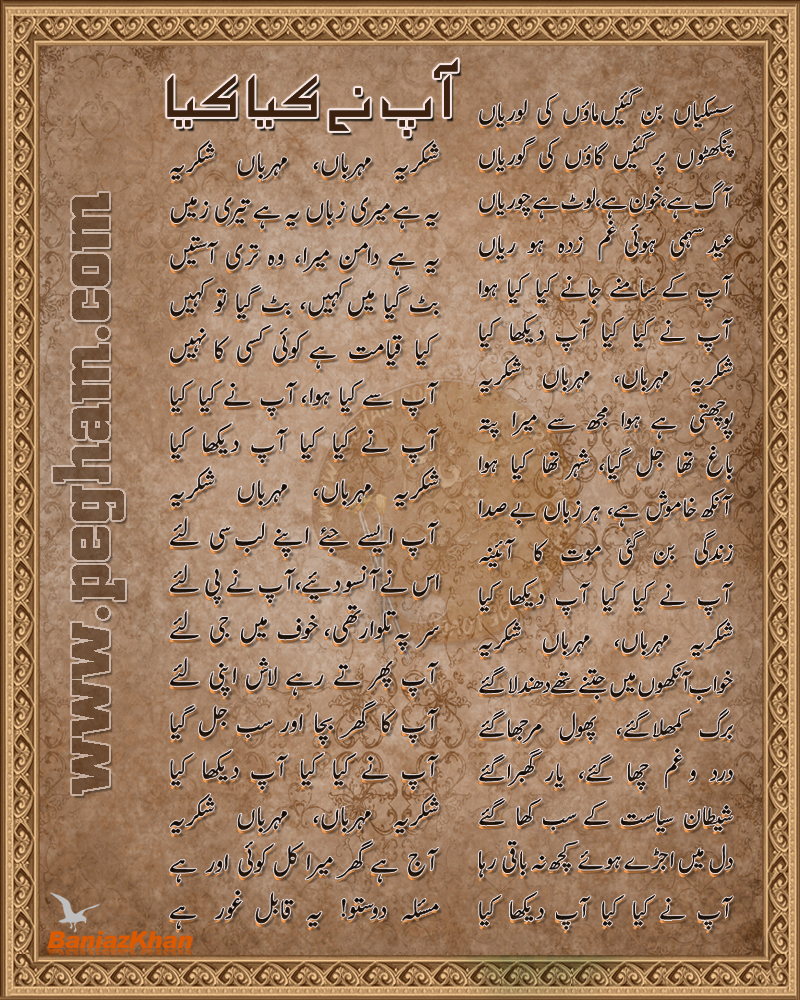 آپ نے کیا کیا
سسکیاں بن گئیں ماؤں کی لوریاں
پنگھٹوں پر گئیں گاؤں کی گوریاں
آگ ہے، خون ہے، لوٹ ہے چوریاں
عید سہمی ہوئی غم زدہ ہو ریاں
آپ کے سامنے جانے کیا کیا ہوا
آپ نے کیا کیا آپ دیکھا کیا
شکریہ مہرباں، مہرباں شکریہ
پوچھتی ہے ہوا مجھ سے میرا پتہ
باغ تھا جل گیا، شہر تھا کیا ہوا
آنکھ خاموش ہے، ہر زباں بے صدا
زندگی بن گئی موت کا آئینہ
آپ نے کیا کیا آپ دیکھا کیا
شکریہ مہرباں، مہرباں شکریہ
خواب آنکھوں میں جتنے تھے دھندلا گئے
برگ کمھلا گئے، پھول مرجھا گئے
درد و غم چھا گئے، یار گھبرا گئے
شیطان سیاست کے سب کھا گئے
دل میں اجڑے ہوئے کچھ نہ باقی رہا
آپ نے کیا کیا آپ دیکھا کیا
شکریہ مہرباں، مہرباں شکریہ
یہ ہے میری زباں یہ ہے تیری زمیں
یہ ہے دامن میرا، وہ تری آستیں
بٹ گیا میں کہیں، بٹ گیا تو کہیں
کیا قیامت ہے کوئی کسی کا نہیں
آپ سے کیا ہوا، آپ نے کیا کیا
آپ نے کیا کیا آپ دیکھا کیا
شکریہ مہرباں، مہرباں شکریہ
آپ ایسے جئے اپنے لب سی لئے
اس نے آنسو دیئے، آپ نے پی لئے
سر پہ تلوار تھی، خوف میں جی لئے
آپ پھر تے رہے لاش اپنی لئے
آپ کا گھر بچا اور سب جل گیا
آپ نے کیا کیا آپ دیکھا کیا
شکریہ مہرباں، مہرباں شکریہ
آج ہے گھر میرا کل کوئی اور ہے
مسئلہ دوستو! یہ قابل غور ہے
www.pegham.com
BaniazKhan